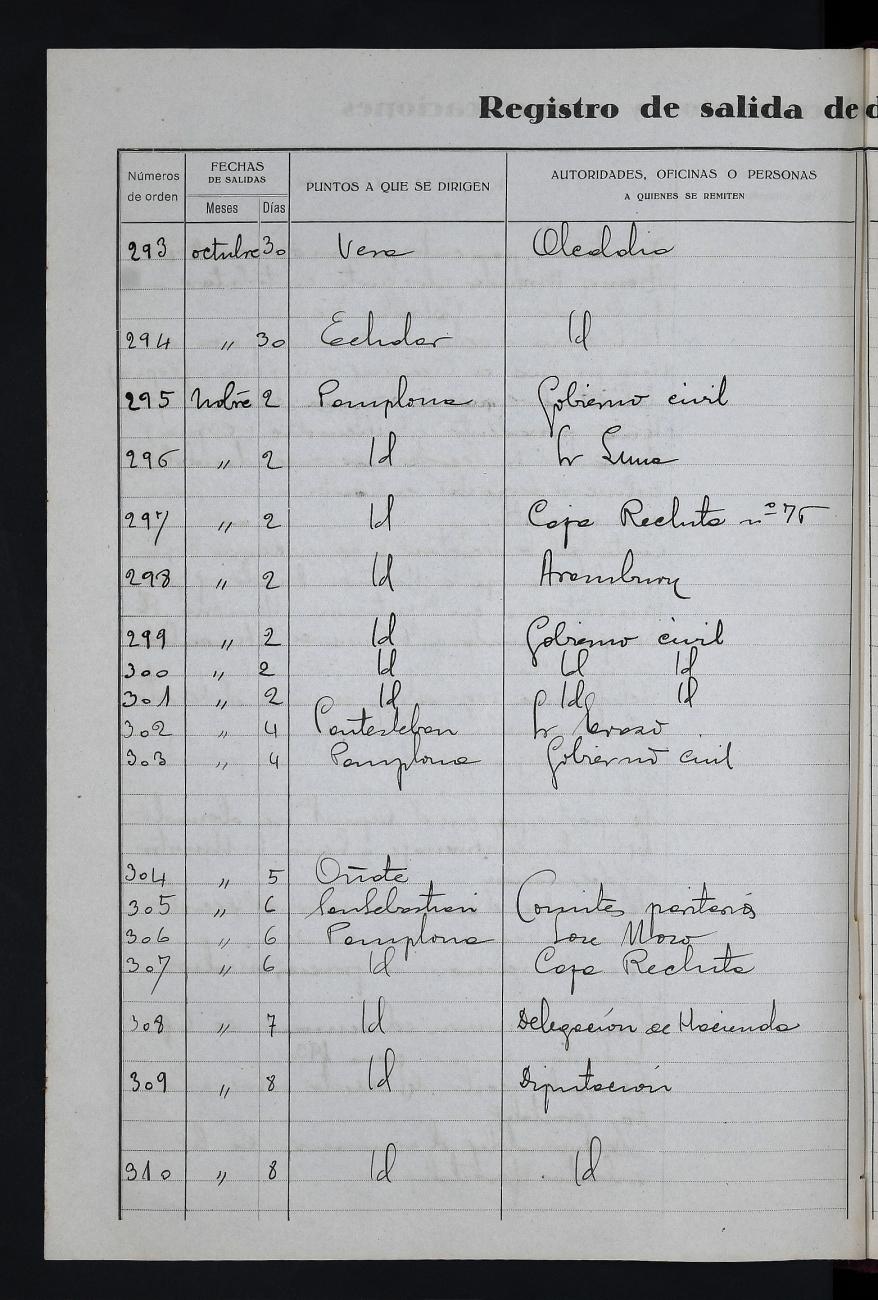 Registro de salida de d
Números de orden
FECHAS DE SALIDAS
Meses Días
PUNTOS A QUE SE DIRIGEN
AUTORIDADES, OFICINAS O PERSONAS
A QUIENES SE REMITEN
293 octubre 30 Vera Alcaldia
294 " 30 Echalar Id
295 Nobre 2 Pamplona Gobierno civil
296 " 2 Id Sr Luna
297 " 2 Id Caja Recluta nº 75
298 " 2 Id Aramburu
299 " 2 Id Gobierno civil
300 " 2 Id Id Id
301 " 2 Id Id Id
302 " 4 Santesteban Sr
303 " 4 Pamplona Gobierno civil
304 " 5 Oñate
305 " 6 San Sebastian Comites paritarios
306 " 6 Pamplona Jose Mozo
307 " 6 Id Caja Recluta
308 " 7 Id Delegación de Hacienda
309 " 8 Id Diputación
310 " 8 Id Id